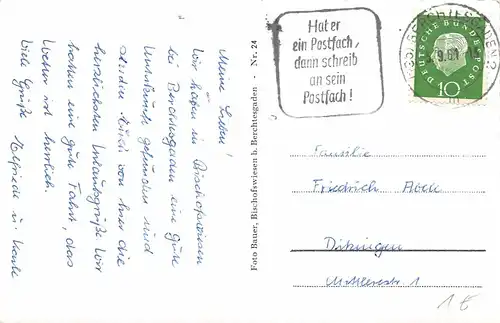 Meine Lieben!
Wir haben in Bischofswiesen
bei Berchtesgaden eine gute
Unterkunft gefunden und
senden Euch von hier die
herzlichsten Urlaubsgrüße. Wir
hatten eine gute Fahrt, das
Wetter ist herrlich.
Viele Grüße Helfriede u.
Foto Bauer, Bischofswiesen b. Berchtesgaden - Nr. 24
Hat er
ein Postfach,
dann schreib
an sein
Postfach!
BERCHTESGADEN 2
DEUTSCHE BUNDESPOST
10
Familie
Friedrich Abele
1
1 €